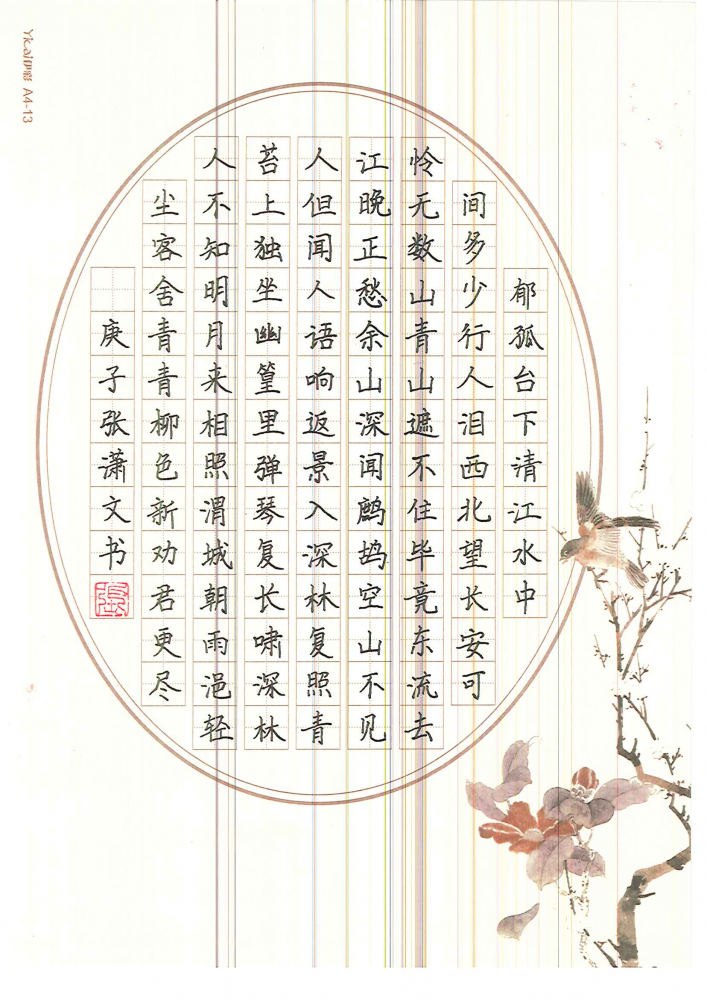 郁孤台下清江水中
间多少行人泪西北望长安可
怜无数山青山遮不住毕竟东流去
江晚正愁余山深闻鹧鸪空山不见
人但闻人语响返景入深林复照青
苔上独坐幽篁里弹琴复长啸深林
人不知明月来相照渭城朝雨浥轻
尘客舍青青柳色新劝君更尽
庚子张潇文书
張
Ykai伊彩 A4-13